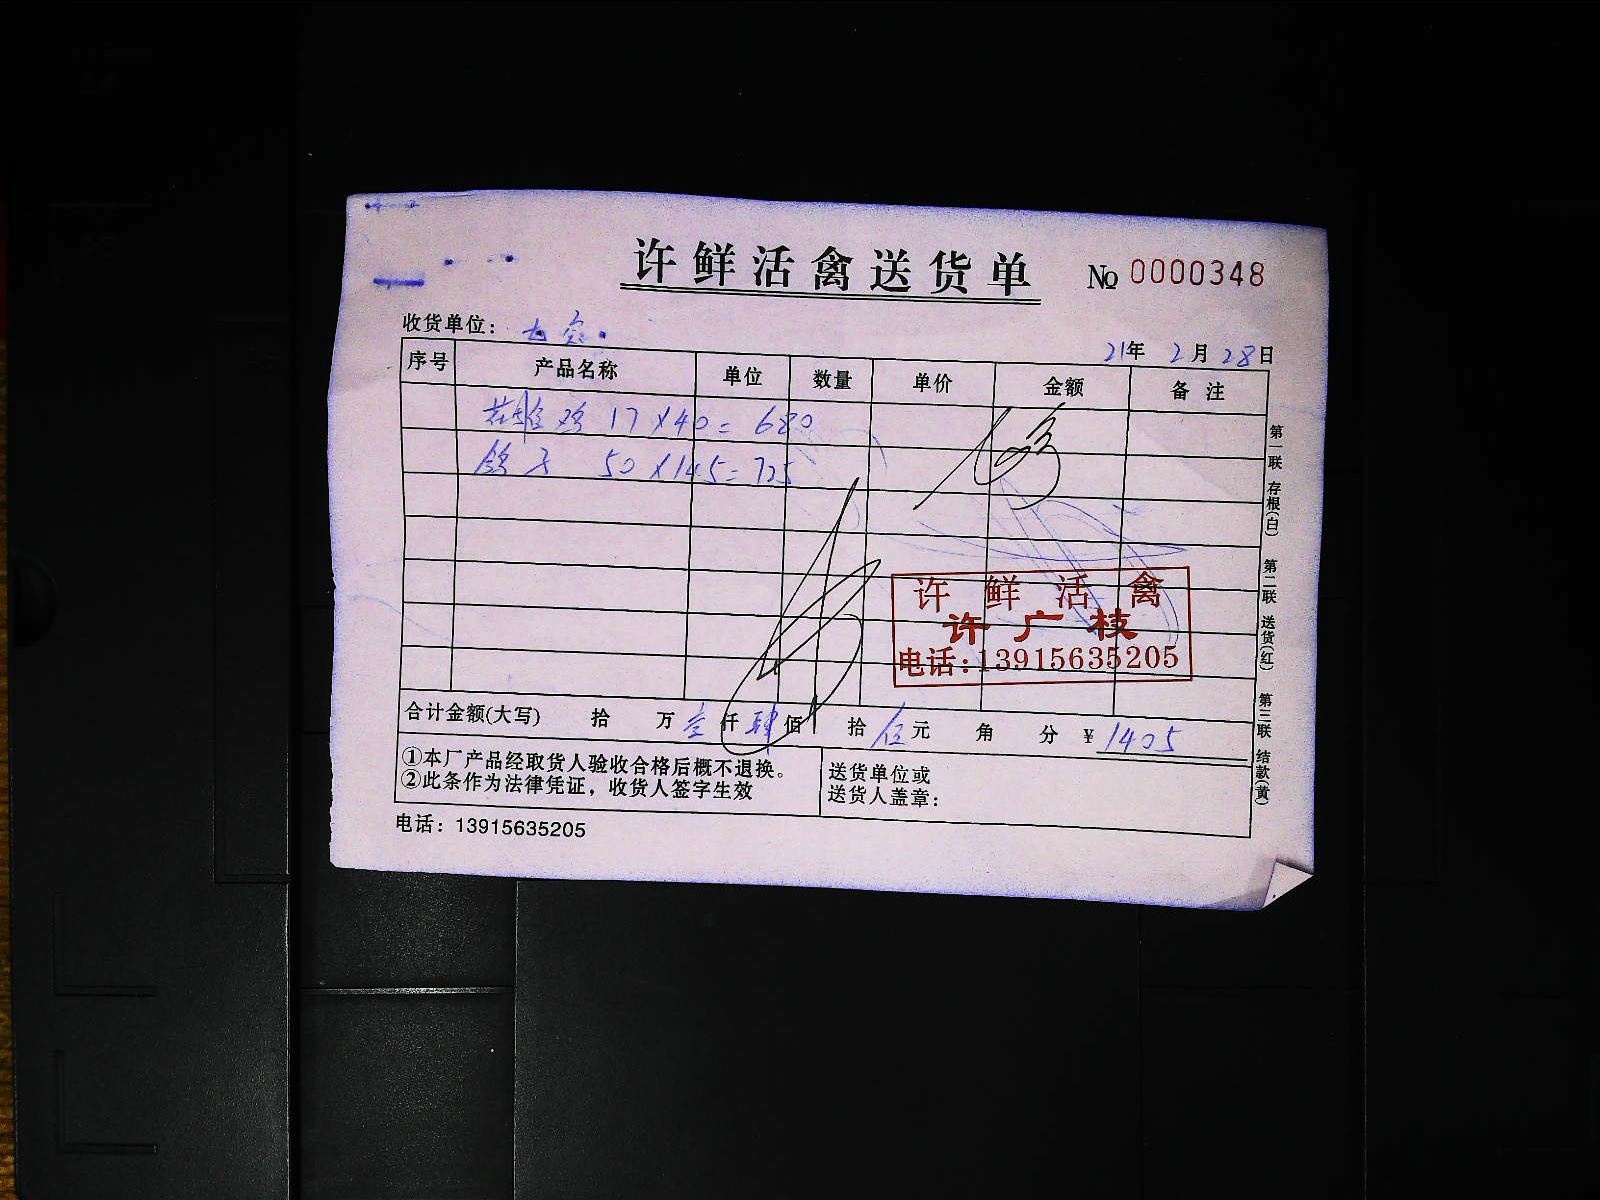 许鲜活禽送货单
№ 0000348
收货单位：
21年 2月28日
序号 产品名称 单位 数量 单价 金额 备注
花雄鸡 17×40=680
鸽子 50×14.5=725
许鲜活禽
许广枝
电话:13915635205
合计金额(大写) 拾 万 壹仟肆佰 拾伍元 角 分 ¥1405
①本厂产品经取货人验收合格后概不退换。
②此条作为法律凭证，收货人签字生效
送货单位或
送货人盖章：
电话：13915635205
第一联 存根(白)
第二联 送货(红)
第三联 结款(黄)